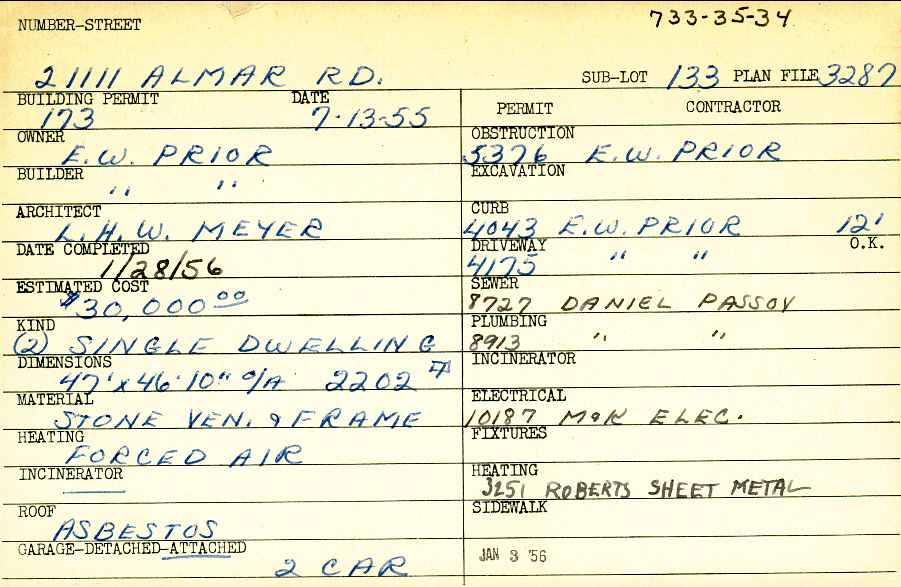 733-35-34
NUMBER-STREET
21111 ALMAR RD.
SUB-LOT 133 PLAN FILE 3287
BUILDING PERMIT DATE
173 7-13-55
OWNER
E.W. PRIOR
BUILDER
" "
ARCHITECT
L.H.W. MEYER
DATE COMPLETED
1/28/56
ESTIMATED COST
$30,000 00
KIND
(2) SINGLE DWELLING
DIMENSIONS
47' x 46'10" O/A 2202
MATERIAL
STONE VEN. & FRAME
HEATING
FORCED AIR
INCINERATOR
ROOF
ASBESTOS
GARAGE-DETACHED-ATTACHED
2 CAR
PERMIT CONTRACTOR
OBSTRUCTION
5376 E.W. PRIOR
EXCAVATION
CURB
4043 E.W. PRIOR 12'
DRIVEWAY O.K.
4175 " "
SEWER
8727 DANIEL PASSOV
PLUMBING
8913 " "
INCINERATOR
ELECTRICAL
10187 M&K ELEC.
FIXTURES
HEATING
3251 ROBERTS SHEET METAL
SIDEWALK
JAN 3 '56